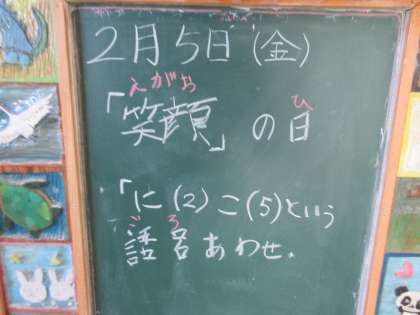 2月5日(金)
えがお ひ
「笑顔」の日
「に(2)こ(5)という
ごろ
語呂あわせ.